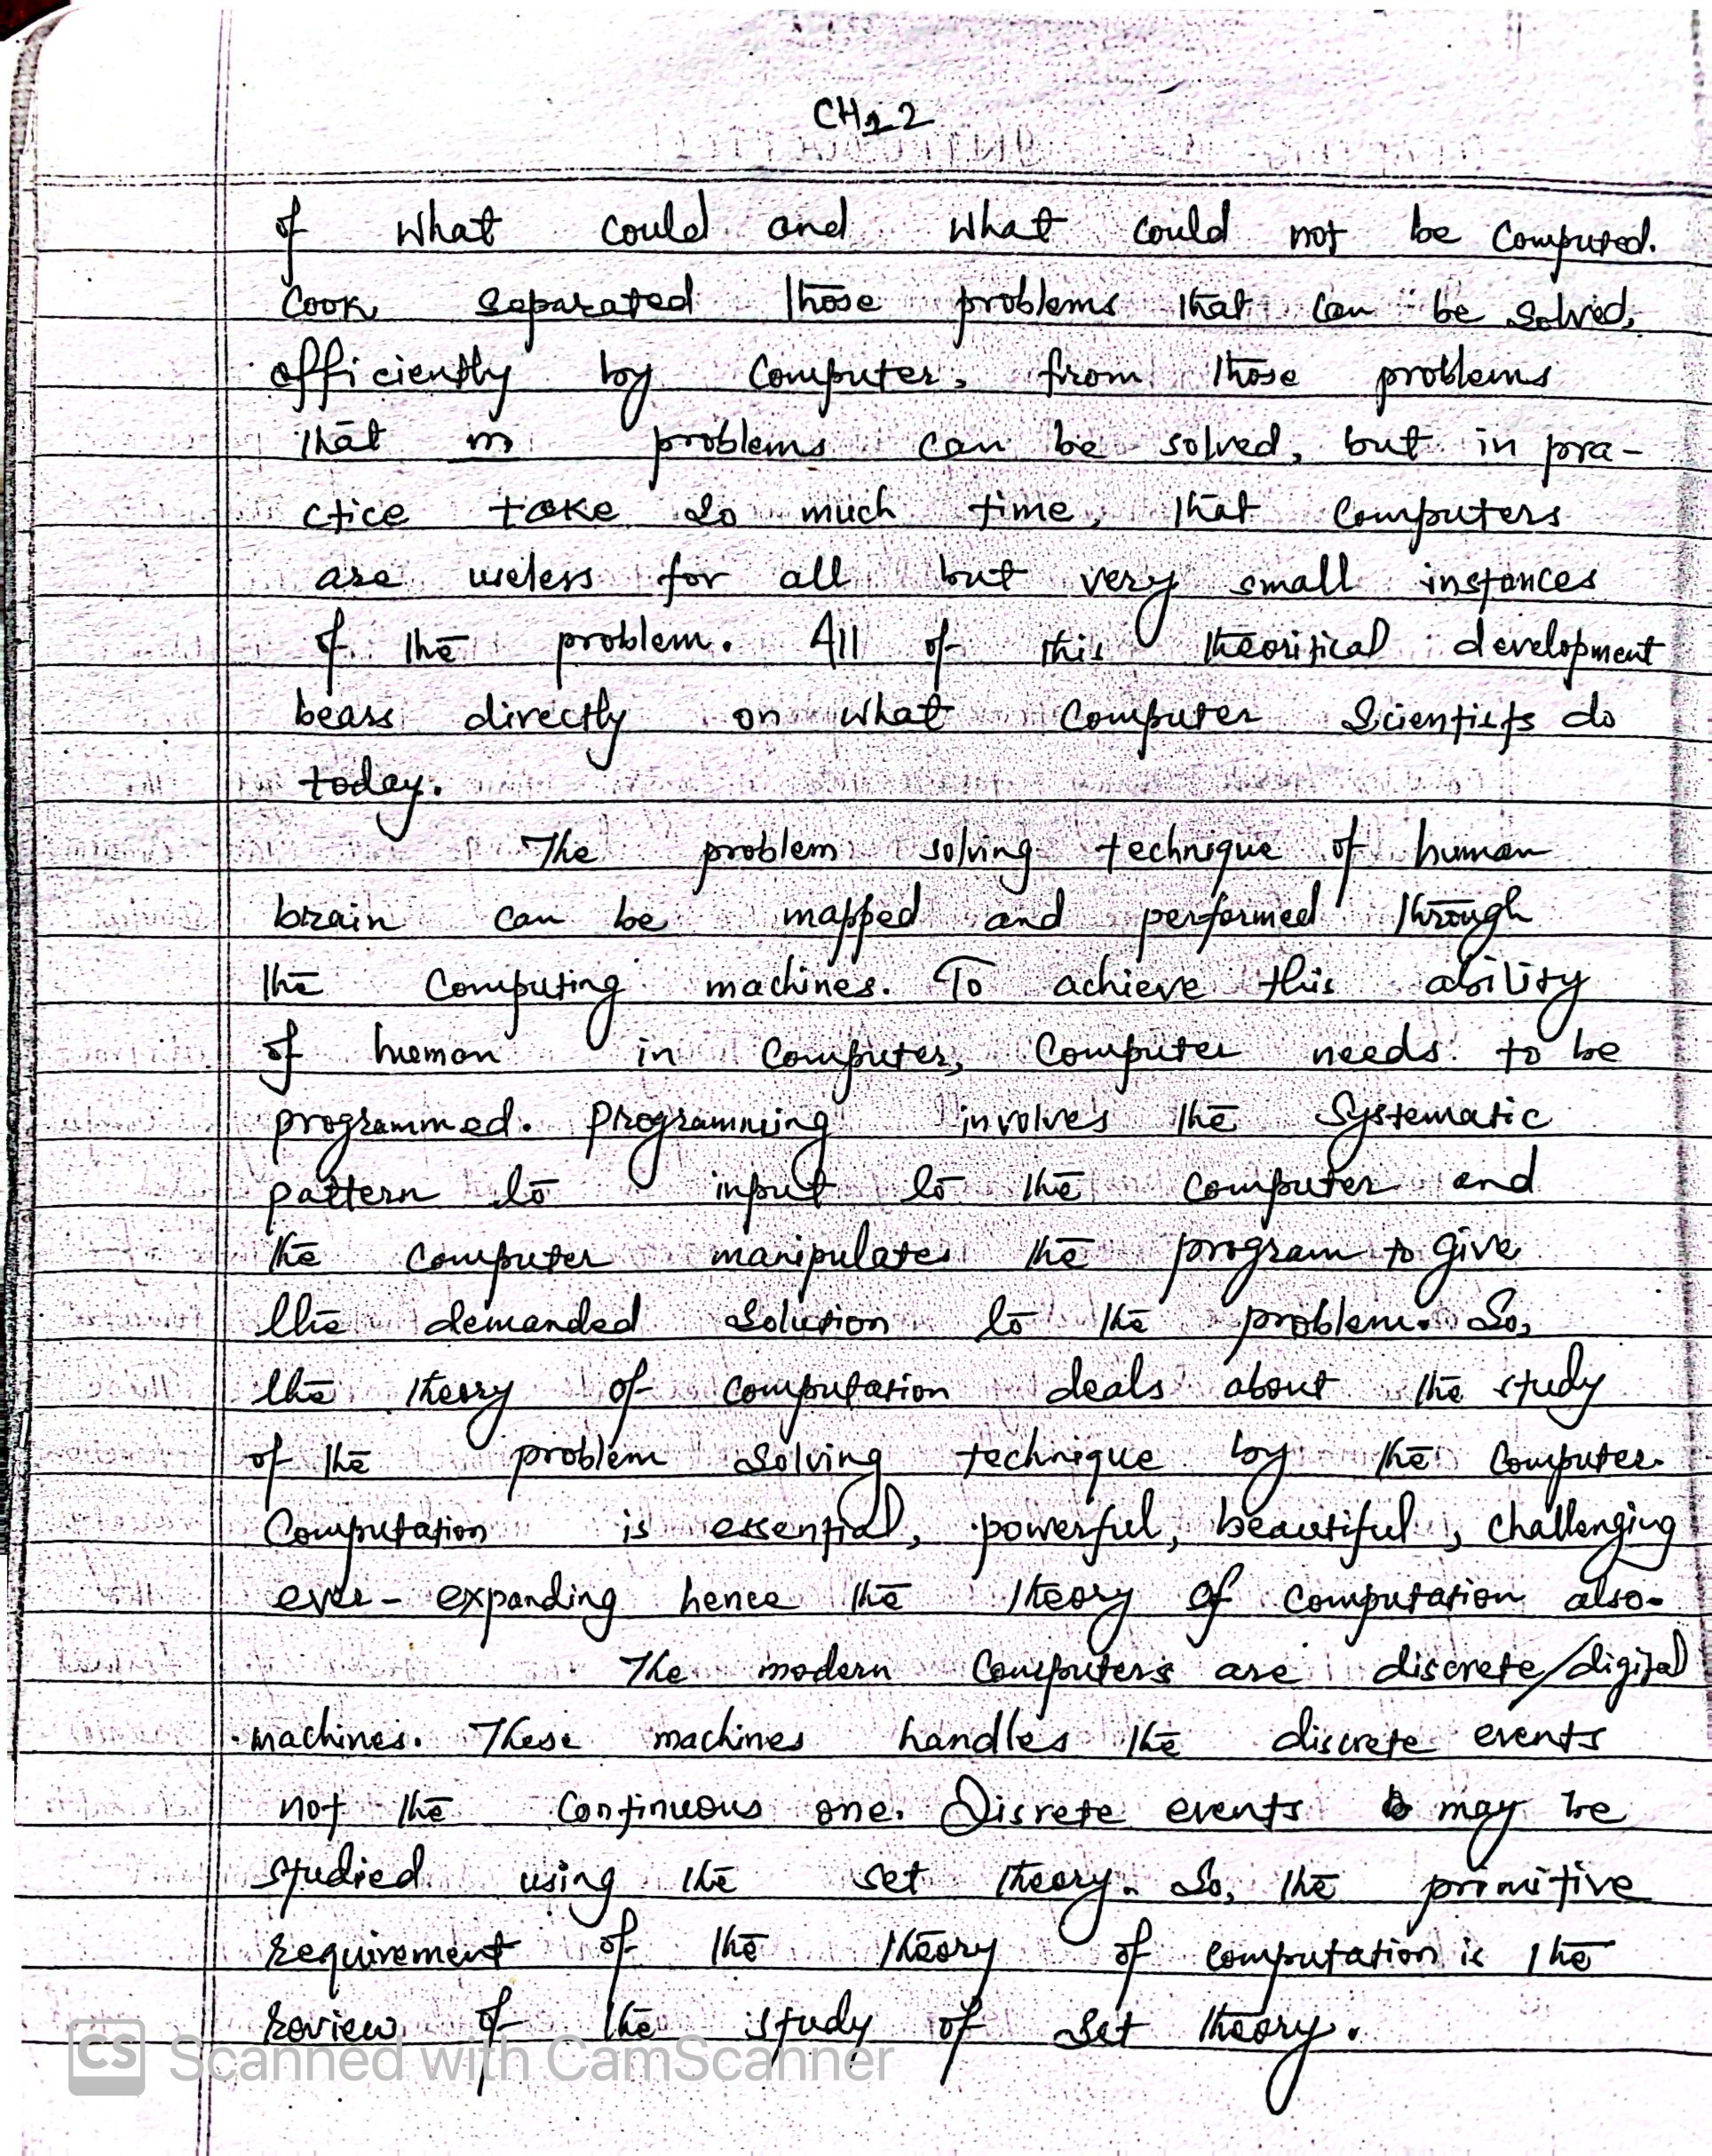 CH12
of what could and what could not be computed.
Cook separated those problems that can be solved,
efficiently by computer, from those problems
that in problems can be solved, but in pra-
ctice take so much time, that computers
are useless for all but very small instances
of the problem. All of this theoritical development
bears directly on what computer scientists do
today.
The problem solving technique of human
brain can be mapped and performed through
the computing machines. To achieve this ability
of human in computer, computer needs to be
programmed. programming involves the systematic
pattern to input to the computer and
the computer manipulates the program to give
the demanded solution to the problem. So,
the theory of computation deals about the study
of the problem solving technique by the computer.
Computation is essential, powerful, beautiful, challenging
ever-expanding hence the theory of computation also.
The modern computers are discrete/digital
machines. These machines handles the discrete events
not the continuous one. Disrete events may be
studied using the set theory. So, the primitive
requirement of the theory of computation is the
review of the study of set theory.
CS Scanned with CamScanner